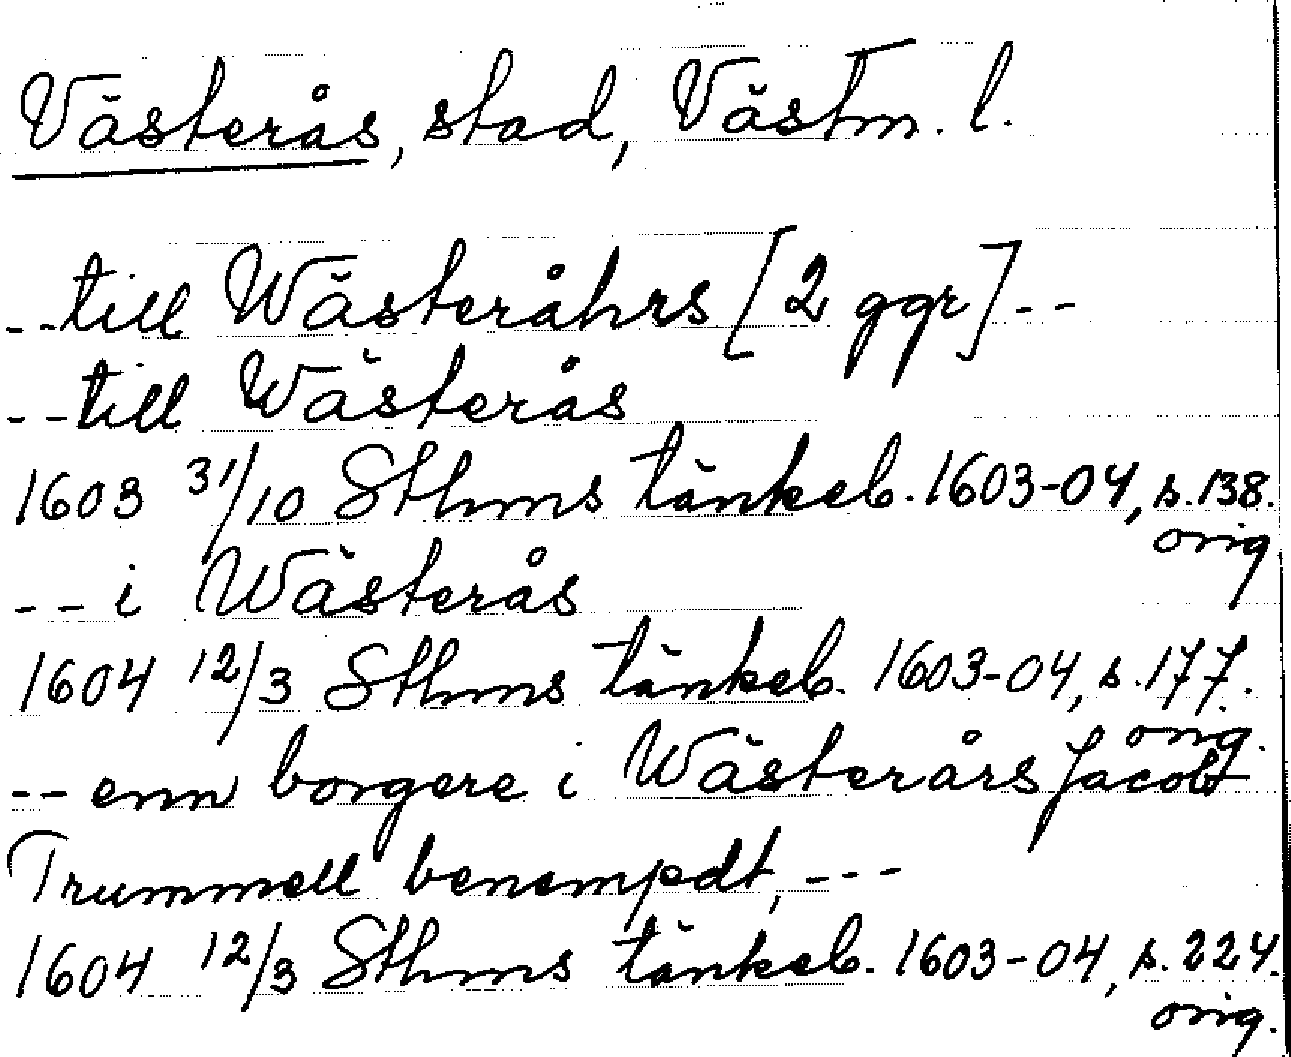 Västerås, stad, Västm. l.
--till Wästeråhrs [2 ggr]--
--till Wästerås
1603 31/10 Sthms tänkeb. 1603-04, s. 138.
orig
-- i Wästerås
1604 12/3 Sthms tänkeb. 1603-04, s. 177.
orig.
-- enn borgere i Wästerårs Jacobt
Trummell benempdt, ---
1604 12/3 Sthms tänkeb. 1603-04, s. 224.
orig.